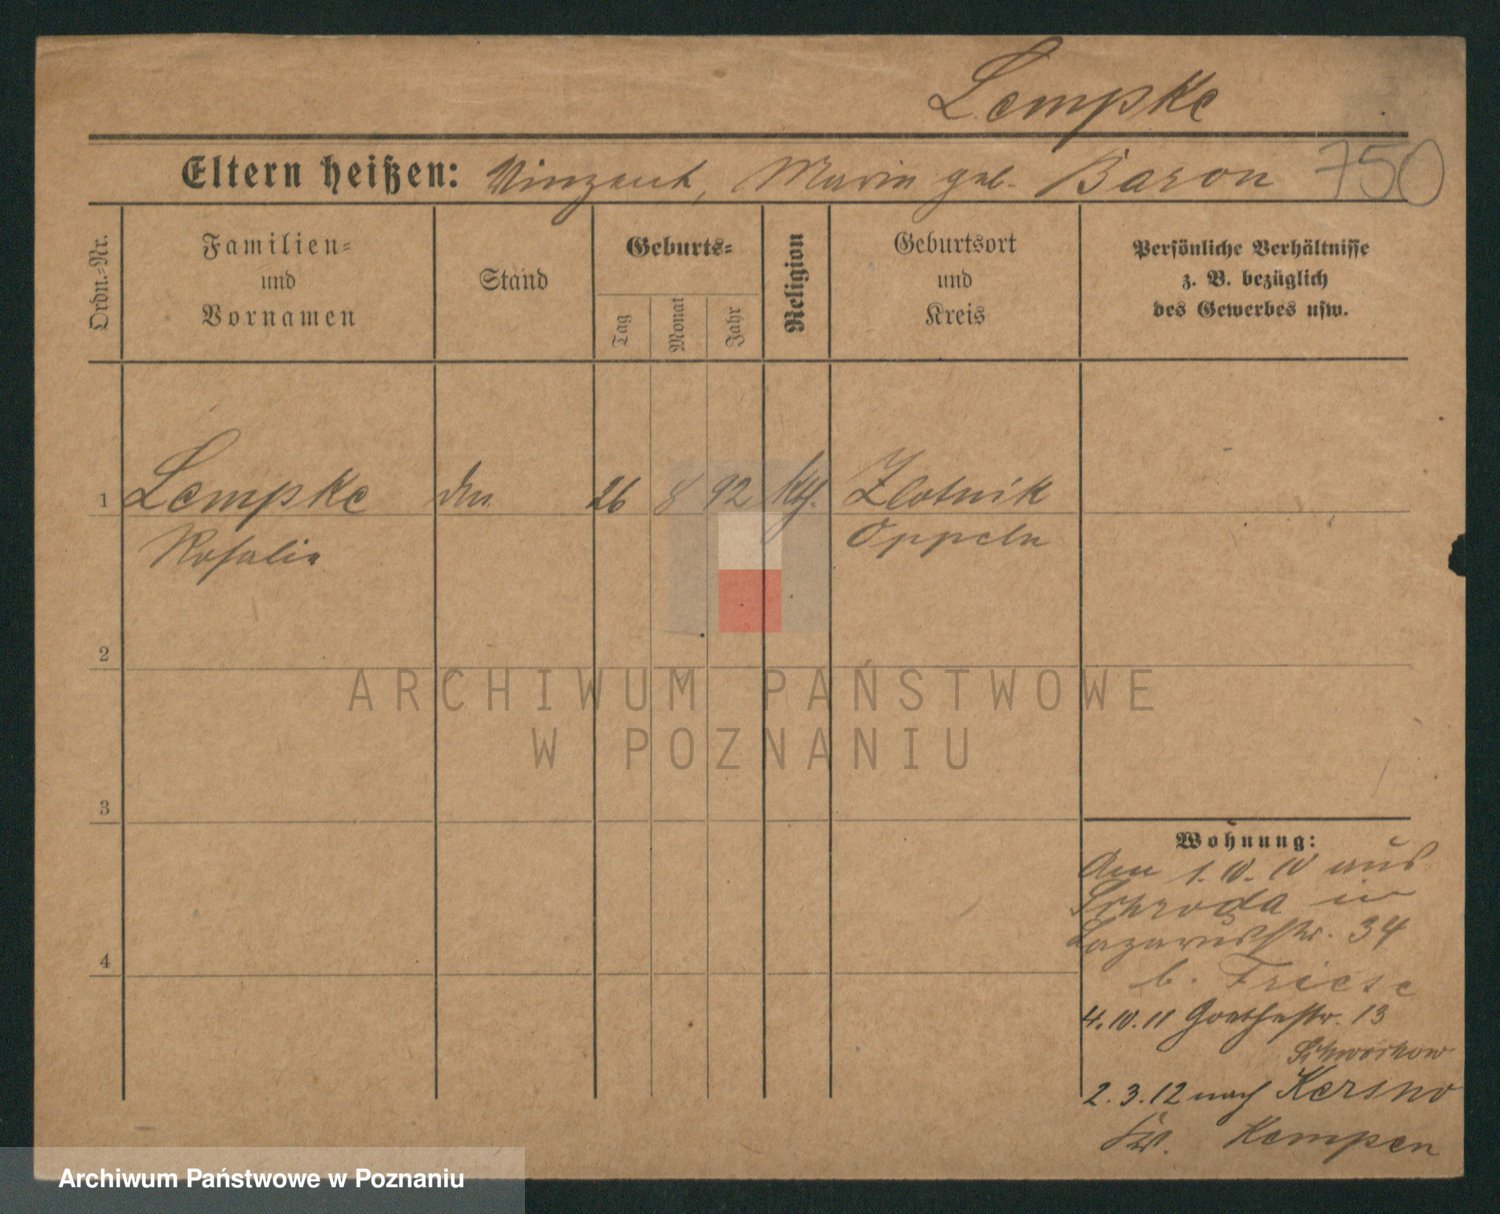 Lempke
Eltern heißen: Vinzent, Marie geb. Baron 750
Ordn.=Nr.
Familien=
und
Vornamen
Stand
Geburts=
Tag
Monat
Jahr
Religion
Geburtsort
und
Kreis
Persönliche Verhältnisse
z. B. bezüglich
des Gewerbes usw.
1 Lempke 26 8 92 kth. Zlotnik
Rosalie Oppeln
2
3
4
Wohnung:
Am 1. IV. 10 aus
Schroda in
Lazarusstr. 34
b. Friese
4. 10. 11 Goethestr. 13
2. 3. 12 nach
Kr. Kempen
ARCHIWUM PAŃSTWOWE
W POZNANIU
Archiwum Państwowe w Poznaniu